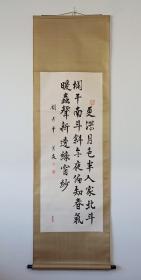 更深月色半人家北斗
闌干南斗斜今夜偏知春氣
暖蟲聲新透綠窗紗
劉方平